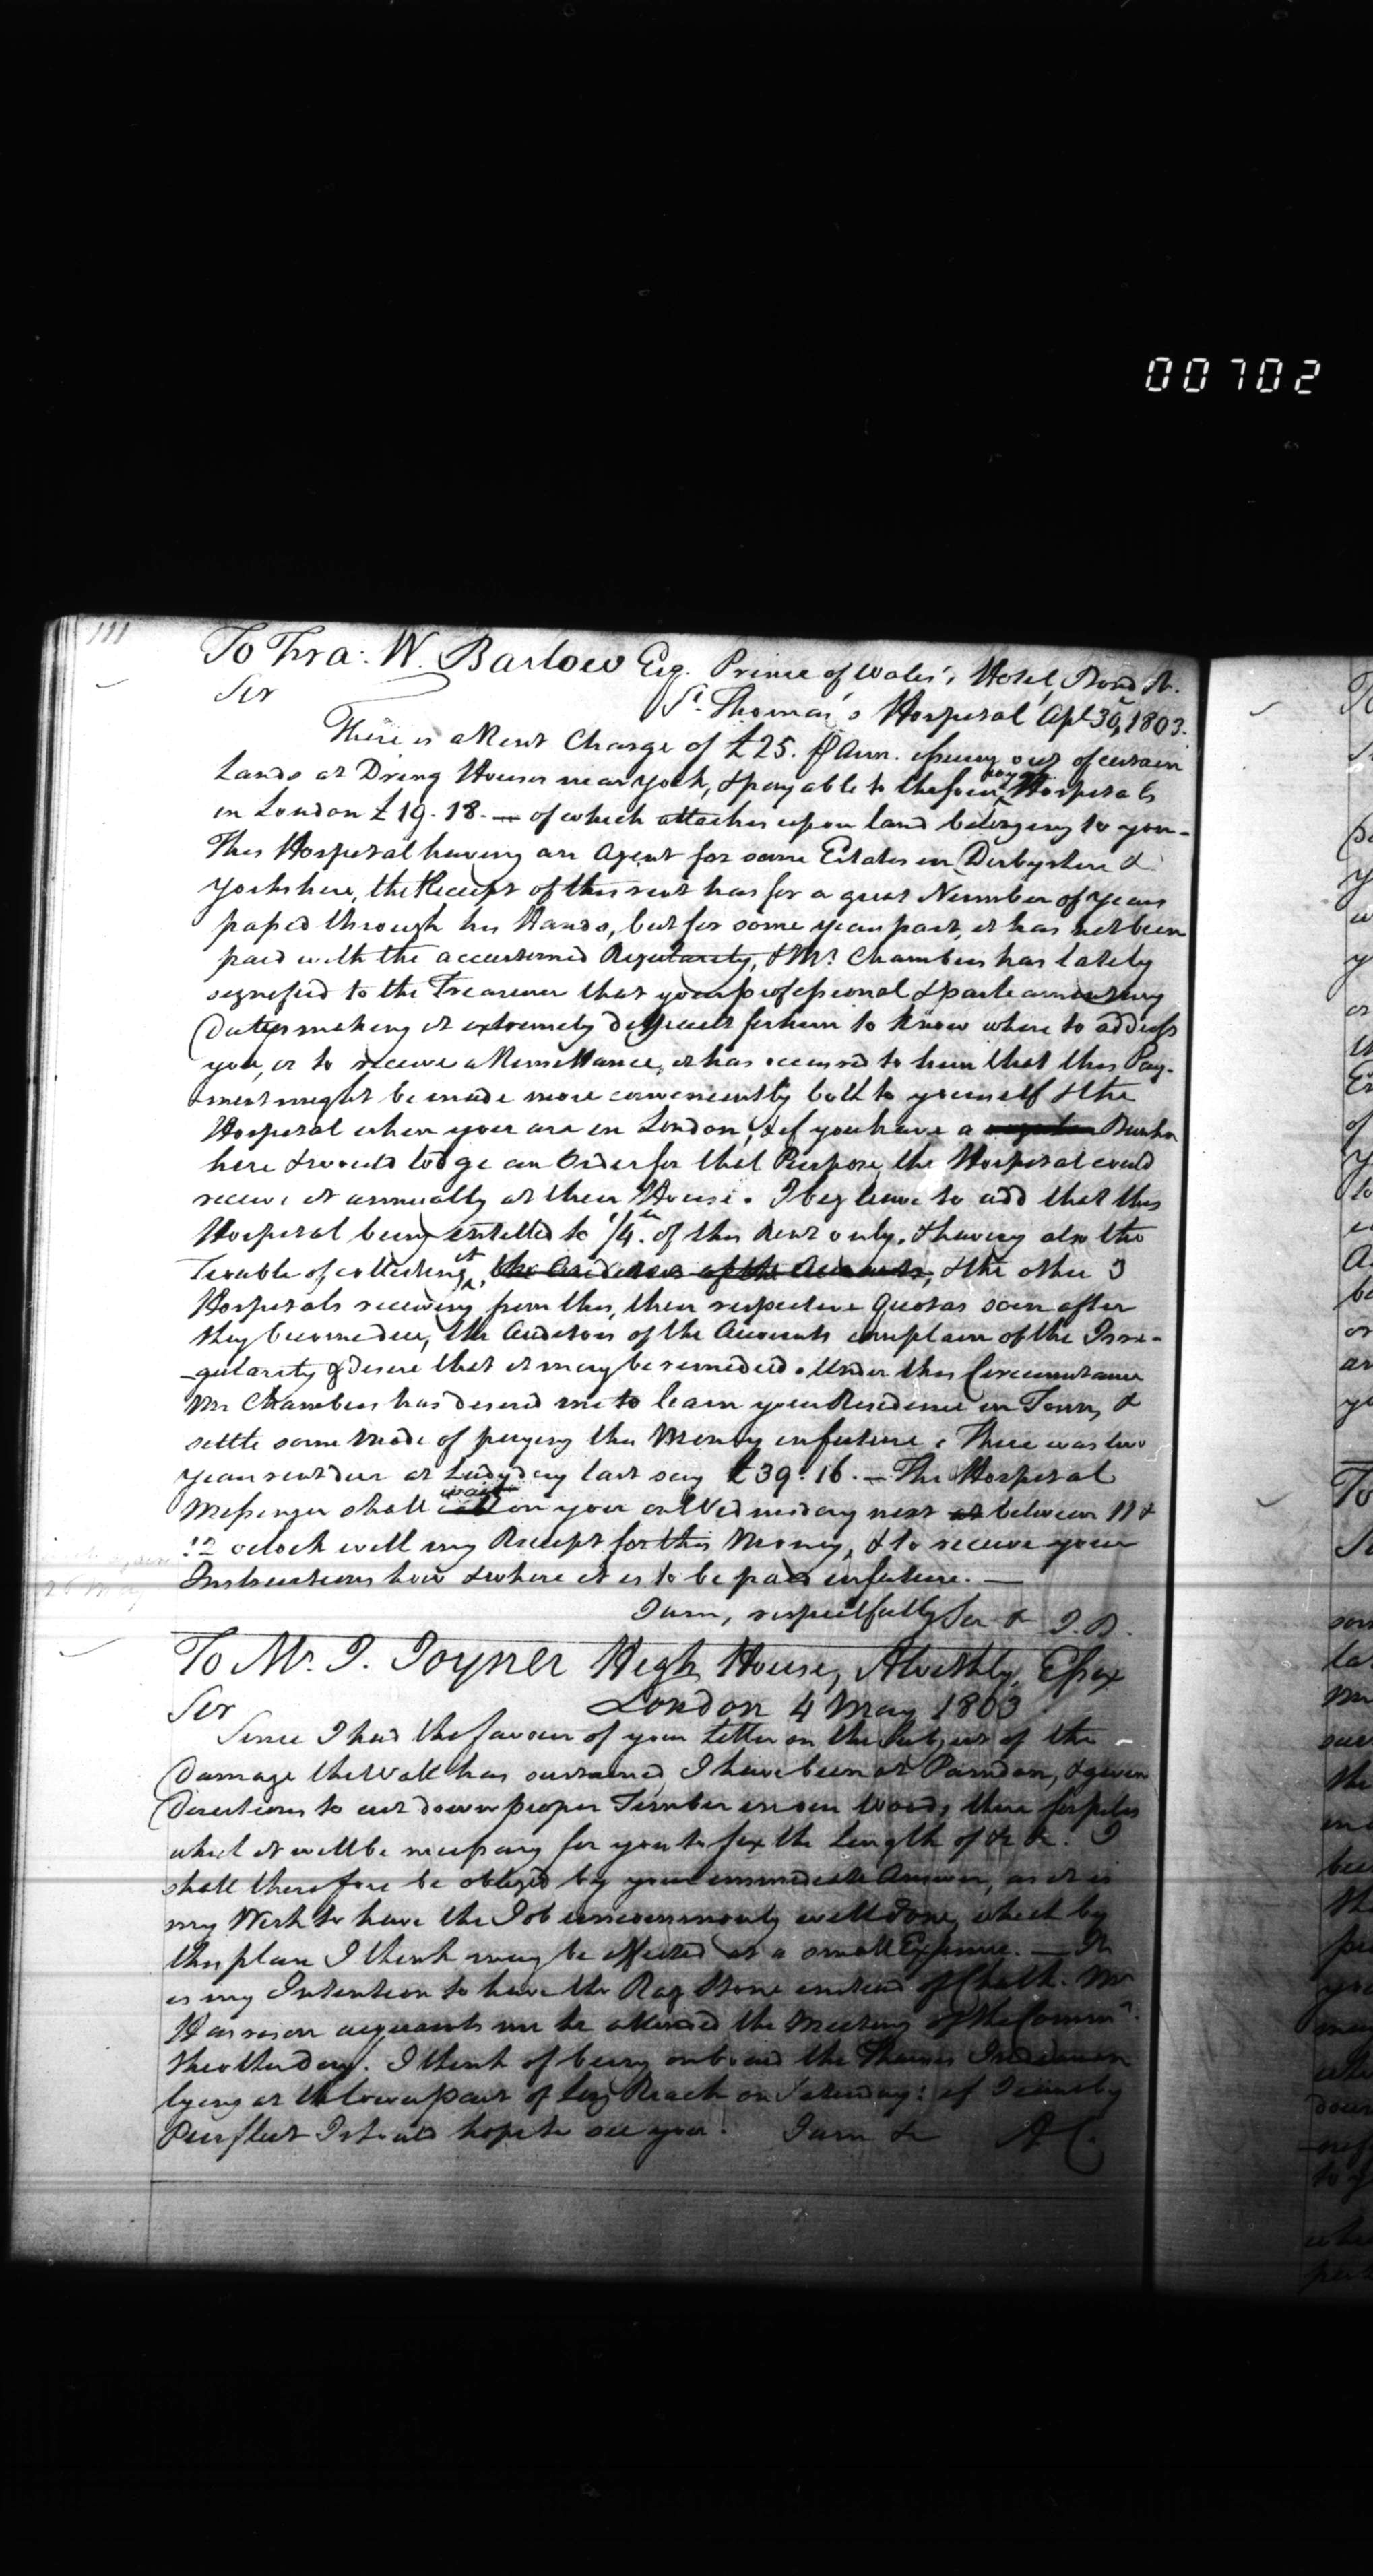 00702
111
To Fra: W. Barlow Esq. Prince of Wales's Hotel, Bond St.
Sir
St. Thomas's Hospital Apl. 30, 1803.
There is a Rent Charge of £25. ⅌ Ann. issuing out of certain
Lands at Dring Houses near York, & payable to the four royal Hospitals
in London £19. 18. — of which attaches upon land belonging to you.
This Hospital having an Agent for some Estates in Derbyshire &
Yorkshire, the Receipt of this rent has for a great Number of Years
passed through his Hands, but for some years past, it has not been
paid with the accustomed Regularity, & Mr. Chambers has lately
signified to the Treasurer that your professional & parliamentary
Duties making it extremely difficult for him to know where to address
you, or to receive a Remittance, it has occurred to him that this Pay-
ment might be made more conveniently both to yourself & the
Hospital when you are in London, & if you have a Banker
here & would lodge an Order for that Purpose, the Hospital could
receive it annually at their House. I beg leave to add that this
Hospital being entitled to 1/4th. of this Rent only, & having also the
Trouble of collecting it, the Auditors of the Accounts, & the other 3
Hospitals receiving from this, their respective Quotas soon after
they become due, the Auditors of the Accounts complain of the Irre-
-gularity & desire that it may be remedied. Under this Circumstance
Mr Chambers has desired me to learn your Residence in Town, &
settle some Mode of paying this Money in future. There was two
years rent due at Ladyday last say £39. 16. — The Hospital
Messenger shall call wait on you on Wednesday next at between 11 &
12 oclock with my Receipt for this Money, & to receive your
Instructions how & where it is to be paid in future. —
I am, respectfully Sir &
26 May
To Mr. J. Joyner High House, Alvethly, Essex
Sir
London 4 May 1803
Since I had the favour of your Letter on the Subject of the
Damage the Wall has sustained I have been at Parndon, & given
Directions to cut down proper Timber in our Woods there for piles
which it will be necessary for you to fix the Length of &c &c. I
shall therefore be obliged by your immediate Answer, as it is
my Wish to have the Job uncommonly well done, which by
this plan I think may be effected at a small Expence. — It
is my Intention to have the Rag Stone instead of Chalk. Mr
Harrison acquaints me he attended the Meeting of the Commrs.
the other day. I think of being on board the Thames Indiaman
lying at the lower part of Long Reach on Saturday: if I come by
Purfleet I should hope to see you. I am &c A C.